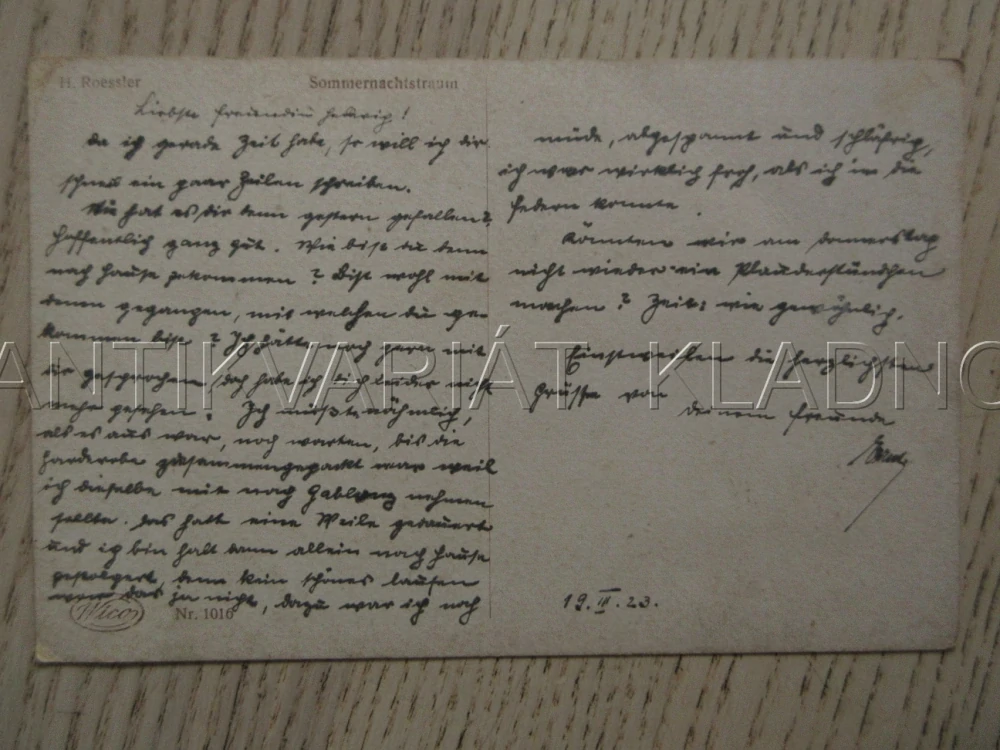 H. Roessler
Sommernachtstraum
Liebste Freundin
da ich gerade Zeit habe, so will ich dir
schnell ein paar Zeilen schreiben.
Wie hat es dir denn gestern gefallen?
Hoffentlich ganz gut. Wie bist du denn
nach Hause gekommen? Bist wohl mit
denen gegangen, mit welchen du ge-
kommen bist? Ich hätte noch gern mit
dir gesprochen, doch habe ich dich leider nicht
mehr gesehen. Ich mußte nähmlich,
als es aus war, noch warten, bis die
Garderobe zusammengepackt war weil
ich dieselbe mit nach Gablonz nehmen
sollte. Das hatt eine Weile gedauert
und ich bin halt dann allein nach Hause
gestolgert, denn kein schönes laufen
war das ja nicht, dazu war ich noch
Wico
Nr. 1016
müde, abgespannt und schläfrig,
ich war wirklich froh, als ich in die
Federn konnte.
Könnten wir am Donnerstag
nicht wieder ein Plauderstündchen
machen? Zeit: wie gewöhnlich.
Einstweilen die herzlichsten
Grüsse von
deinem Freunde
19. III. 23.
ANTIKVARIÁT KLADNO